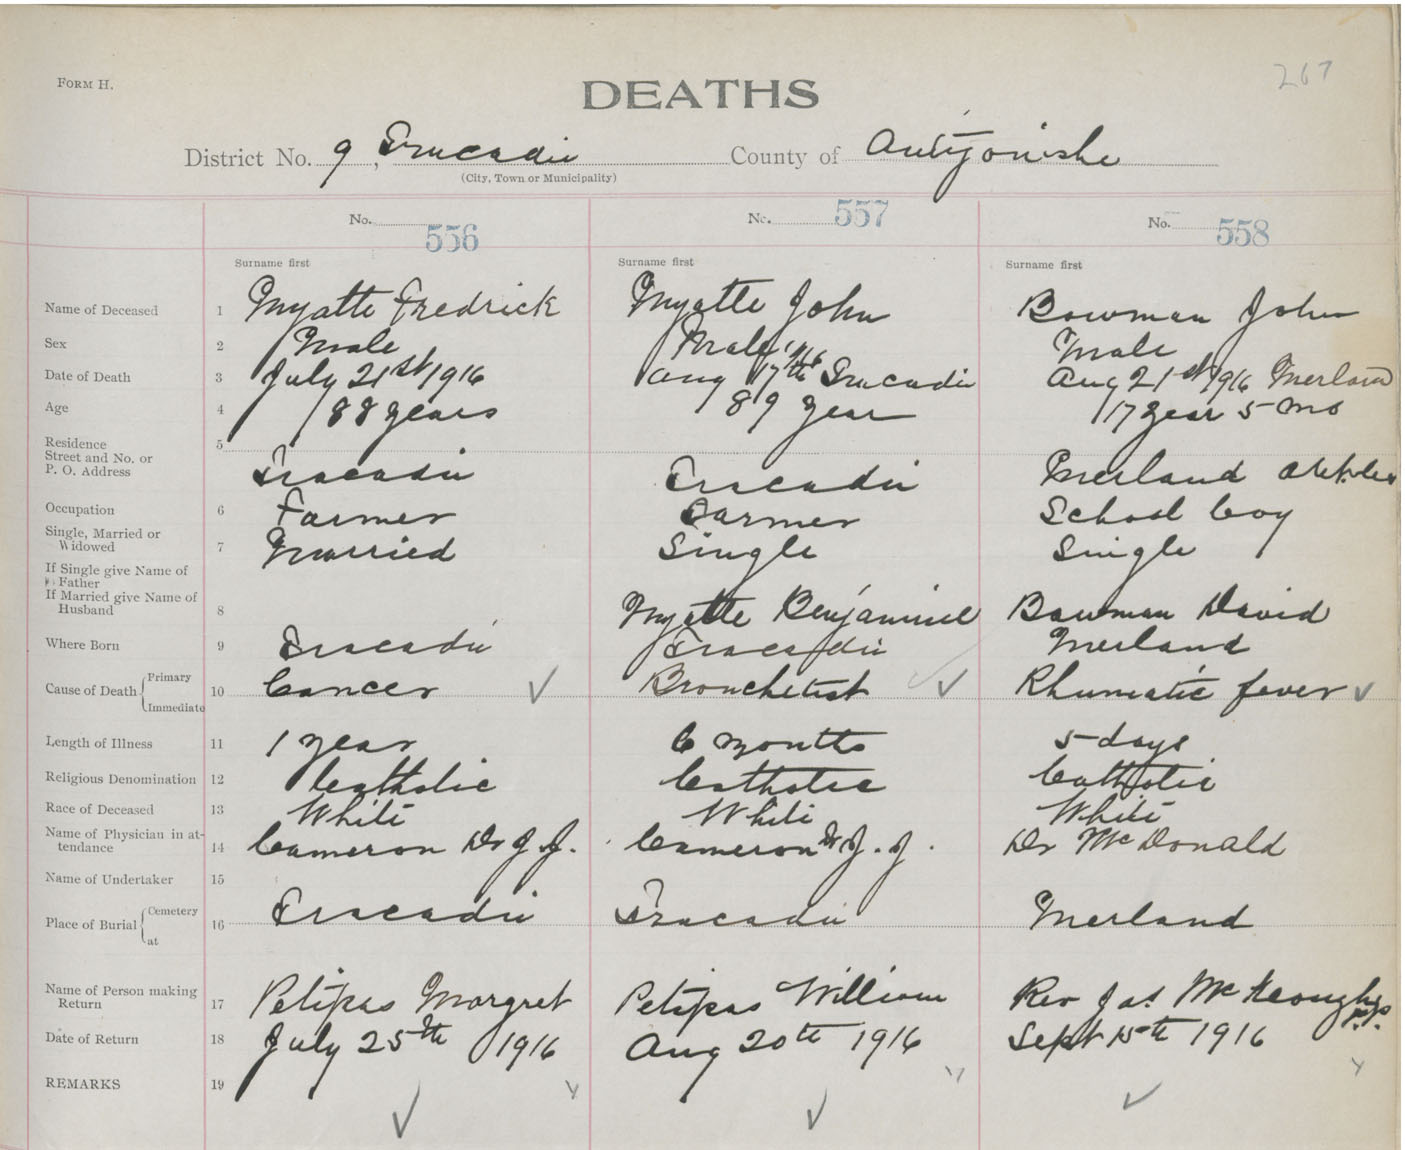 267
FORM H.
DEATHS
District No. 9, Tracadie County of Antigonishe
(City, Town or Municipality)
No. 556 No. 557 No. 558
Surname first Surname first Surname first
Name of Deceased 1 Myatte Fredrick Myatte John Bowman John
Sex 2 Male Male Male
Date of Death 3 July 21st 1916 Aug 17th 1916 Tracadie Aug 21st 1916 Merland
Age 4 88 years 89 year 17 year 5 mo
Residence
Street and No. or
P. O. Address 5 Tracadie Tracadie Merland
Occupation 6 Farmer Farmer School boy
Single, Married or
Widowed 7 Married Single Single
If Single give Name of
Father
If Married give Name of
Husband 8 Myatte Benjaminel Bowman David
Where Born 9 Tracadie Tracadie Merland
Cause of Death { Primary Immediate 10 Cancer Bronchetist Rhumatic fever
Length of Illness 11 1 year 6 months 5 days
Religious Denomination 12 Catholic Catholic Catholic
Race of Deceased 13 White White White
Name of Physician in at-
tendance 14 Cameron Dr J. J. Cameron Dr J. J. Dr McDonald
Name of Undertaker 15
Place of Burial { Cemetery at 16 Tracadie Tracadie Merland
Name of Person making
Return 17 Petipas Margret Petipas William Rev Jas. McKeough P.P.
Date of Return 18 July 25th 1916 Aug 20th 1916 Sept 15th 1916
REMARKS 19